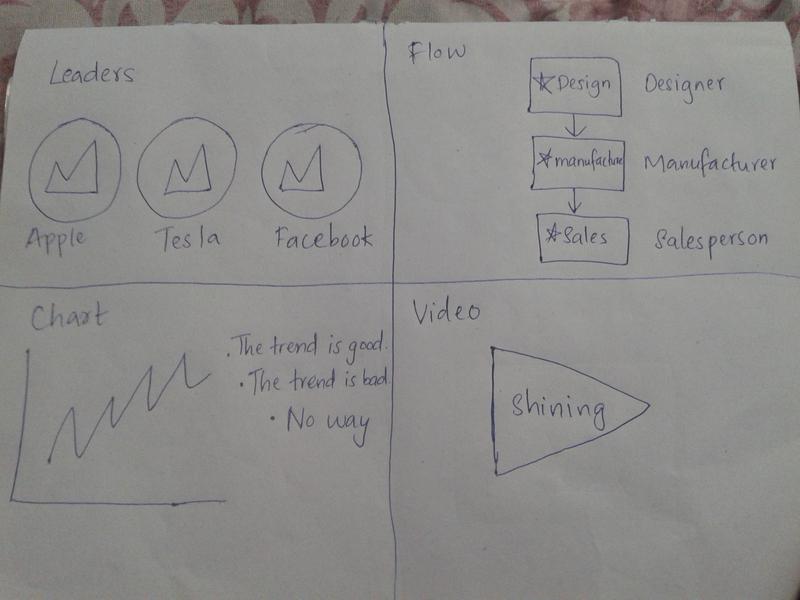 Leaders
Apple Tesla Facebook
Flow
☆Design Designer
☆manufacture Manufacturer
☆Sales Salesperson
Chart
.The trend is good.
•The trend is bad.
• No way
Video
Shining